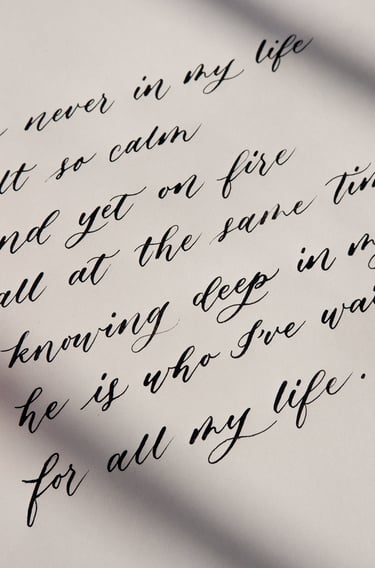 never in my life
so calm
yet on fire
all at the same
knowing deep in
he is who I've
for all my life.